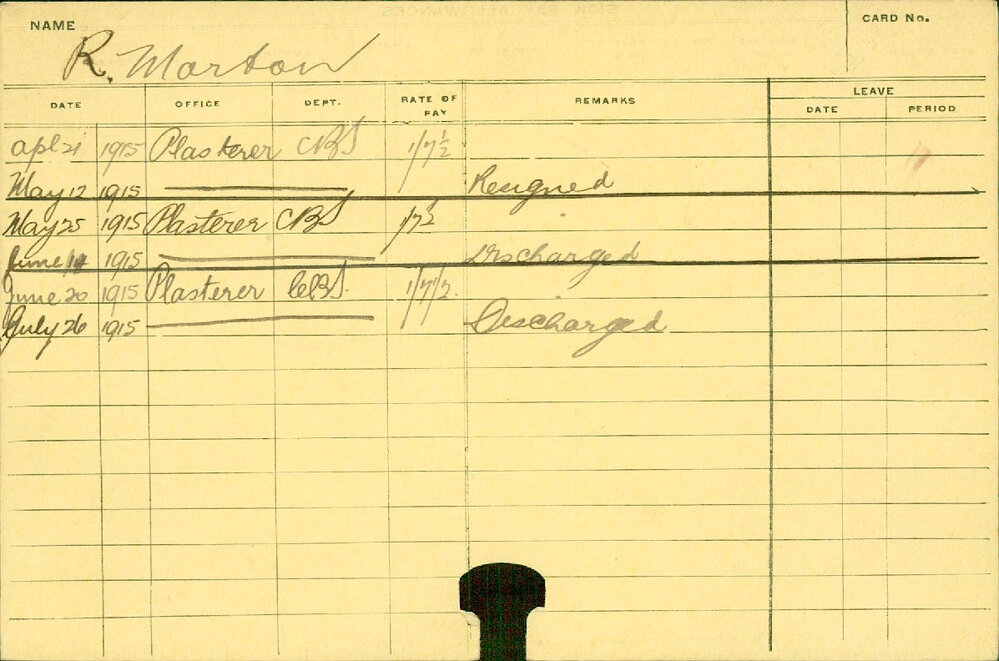 NAME
CARD No.
R. Morton
DATE OFFICE DEPT. RATE OF PAY REMARKS LEAVE
DATE PERIOD
Apl 21 1915 Plasterer CBS 1/7½
May 12 1915 Resigned
May 25 1915 Plasterer CBS 1/7½
June 1915 Discharged
June 20 1915 Plasterer CBS. 1/7/2
July 26 1915 Discharged